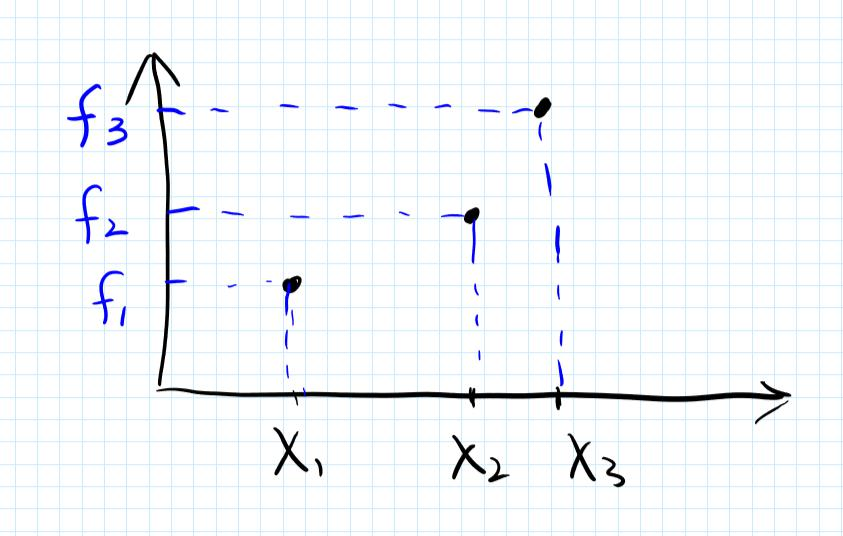 f₃
f₂
f₁
X₁ X₂ X₃